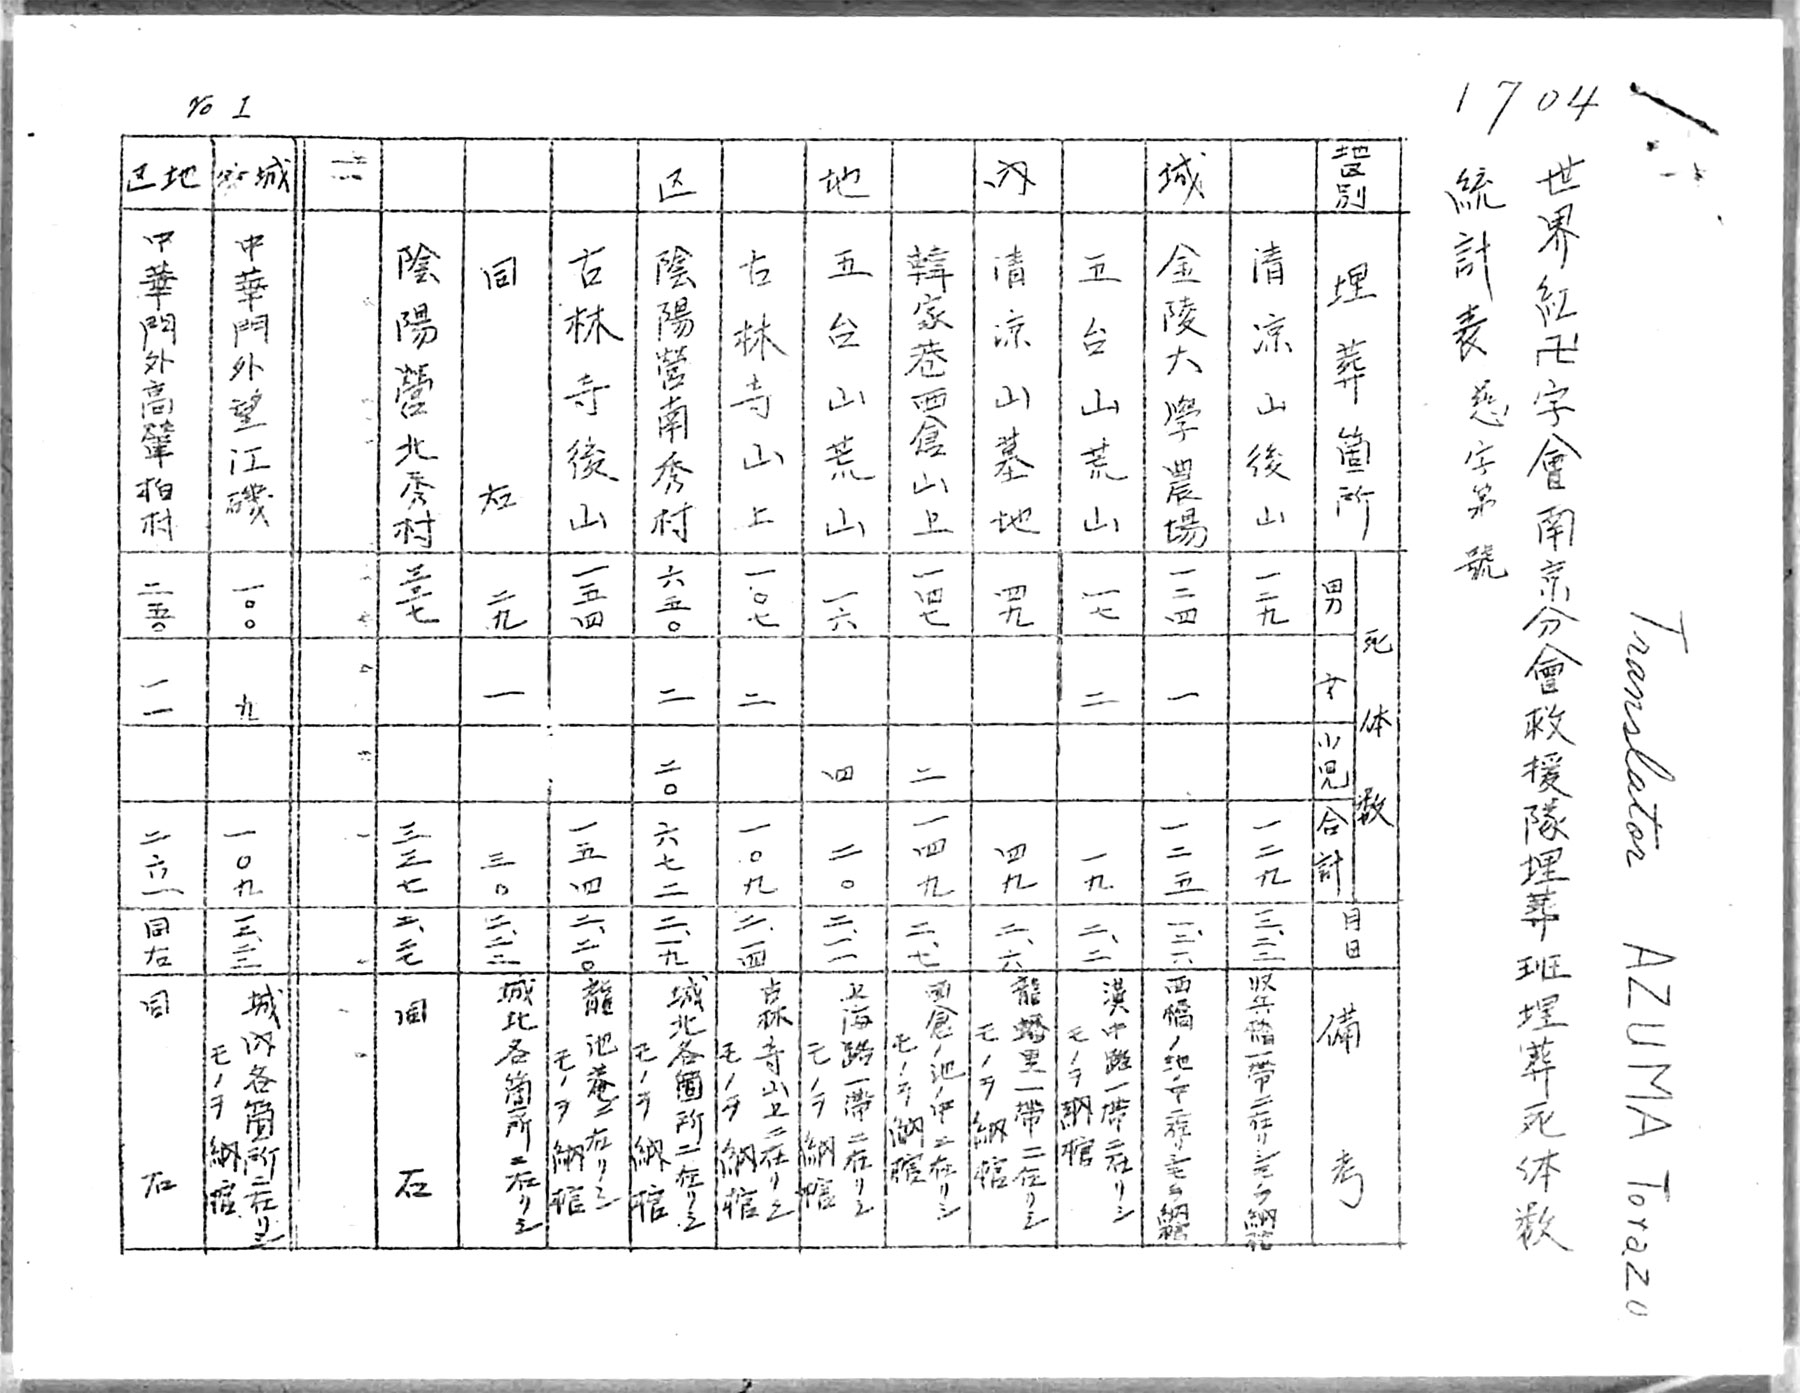 1704
Translator AZUMA Torazo
世界紅卍字會南京分會救援隊埋葬班埋葬死体数
統計表 慈字第 號
地区別 埋葬箇所 死体数 男 女 小児 合計 月日 備考
城内地区
清凉山後山 一二九 一二九
金陵大學農場 一二四 一 一二五
五台山荒山 一七 二 一九 二、二 漢中路一帯ニ在リシモノヲ納棺
清凉山墓地 四九 四九 二、六 龍蟠里一帯ニ在リシモノヲ納棺
韓家巷西倉山上 一四七 二 一四九 二、七 西倉ノ池ノ中ニ在リシモノヲ納棺
五台山荒山 一六 四 二〇 二、一一 上海路一帯ニ在リシモノヲ納棺
古林寺山上 一〇七 二 一〇九 二、一四 古林寺山上ニ在リシモノヲ納棺
陰陽營南秀村 六五〇 二 二〇 六七二 二、一九 城北各箇所ニ在リシモノヲ納棺
古林寺後山 一五四 一五四 二、二〇 龍池菴ニ在リシモノヲ納棺
同右 二九 一 三〇 二、二二 城北各箇所ニ在リシ
陰陽營北秀村 三三七 三三七 二、二七 同右
城外地区
中華門外望江磯 一〇〇 九 一〇九 城内各箇所ニ在リシモノヲ納棺
中華門外高輦柏村 二五〇 一一 二六一 同右 同右
No 1